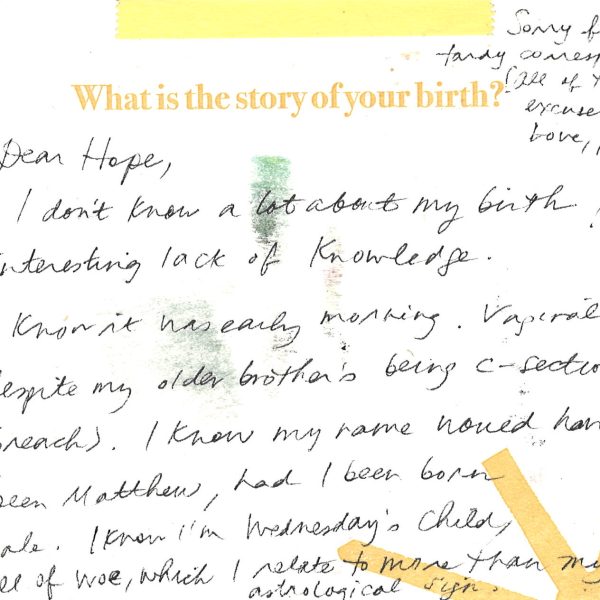 Sorry f
tardy corres
(See of t
excuse
Love,
What is the story of your birth?
Dear Hope,
I don't know a lot about my birth!
interesting lack of knowledge.
Know it was early morning. Vaginal
espite my older brother's being c-sectio
breach). I know my name would hav
een Matthew, had I been born
ale. I know I'm Wednesday's Child,
ll of woe, which I relate to more than my
astrological sign.